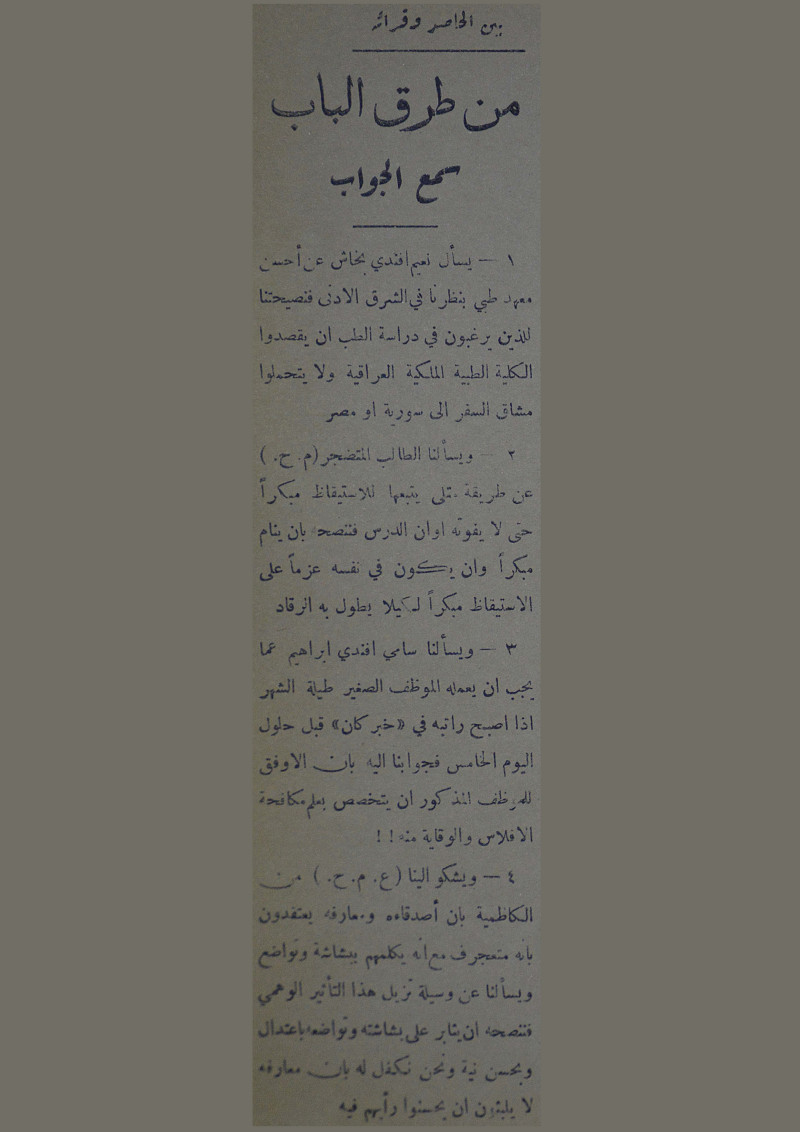 بين الحاصد وقرائه
من طرق الباب
سمع الجواب
١ — يسأل نعيم افندي بخاش عن أحسن
معهد طبي بنظرنا في الشرق الادنى فنصيحتنا
للذين يرغبون في دراسة الطب ان يقصدوا
الكلية الطبية الملكية العراقية ولا يتحملوا
مشاق السفر الى سورية او مصر
٢ — ويسألنا الطالب المتضجر (م. ح.)
عن طريقة مثلى يتبعها للاستيقاظ مبكراً
حتى لا يفوته اوان الدرس فننصحه بان ينام
مبكراً وان يكون في نفسه عزماً على
الاستيقاظ مبكراً لكيلا يطول به الرقاد
٣ — ويسألنا سامي افندي ابراهيم عما
يجب ان يعمله الموظف الصغير طيلة الشهر
اذا اصبح راتبه في «خبر كان» قبل حلول
اليوم الخامس فجوابنا اليه بان الاوفق
للموظف المذكور ان يتخصص بعلم مكافحة
الافلاس والوقاية منه ! !
٤ — ويشكو الينا (ع. م. ح.) من
الكاظمية بان أصدقاءه ومعارفه يعتقدون
بانه متعجرف مع انه يكلمهم ببشاشة وتواضع
ويسألنا عن وسيلة تزيل هذا التأثير الوهمي
فننصحه ان يثابر على بشاشته وتواضعه باعتدال
وبحسن نية ونحن نكفل له بان معارفه
لا يلبثون ان يحسنوا رأيهم فيه